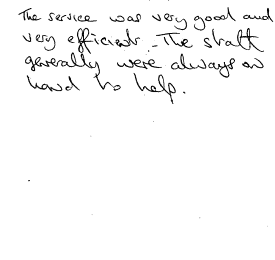 The service was very good and
very efficient. The staff
generally were always on
hand to help.